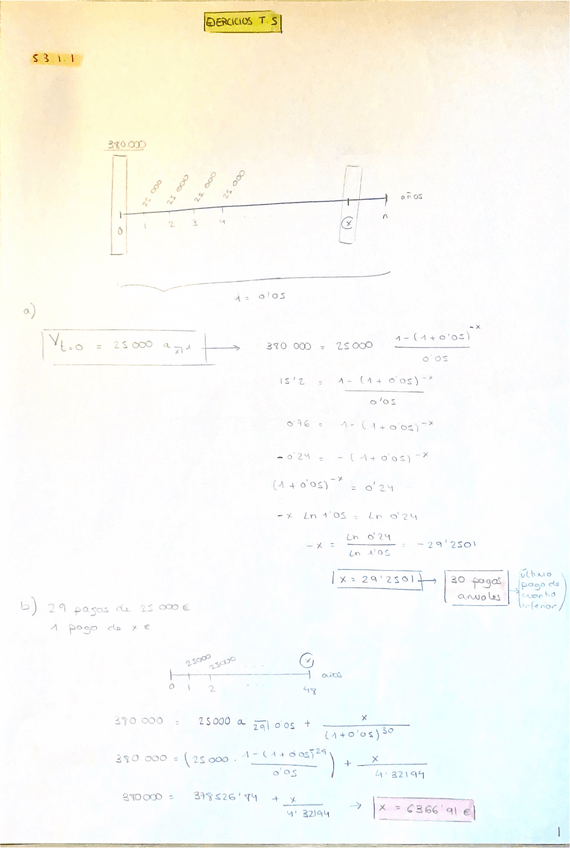 EJERCICIOS T.5
5 3 1.1
380 000
25 000 25 000 25 000 25 000
años
0 1 2 3 4 x n
i = 0'05
a)
V t=0 = 25000 a x̅| i → 380 000 = 25000 1-(1+0'05)^-x / 0'05
15'2 = 1-(1+0'05)^-x / 0'05
0'76 = 1-(1+0'05)^-x
-0'24 = -(1+0'05)^-x
(1+0'05)^-x = 0'24
-x Ln 1'05 = Ln 0'24
-x = Ln 0'24 / Ln 1'05 = -29'2501
x = 29'2501 → 30 pagos anuales → (Último pago de cuantía inferior)
b) 29 pagos de 25 000 €
1 pago de x €
25000 25000 .... x
0 1 2 .... 48 años
380 000 = 25000 a 29| 0'05 + x / (1+0'05)^30
380 000 = (25000 · 1-(1+0'05)^-29 / 0'05) + x / 4'32194
380000 = 378526'84 + x / 4'32194 → x = 6366'91 €
1